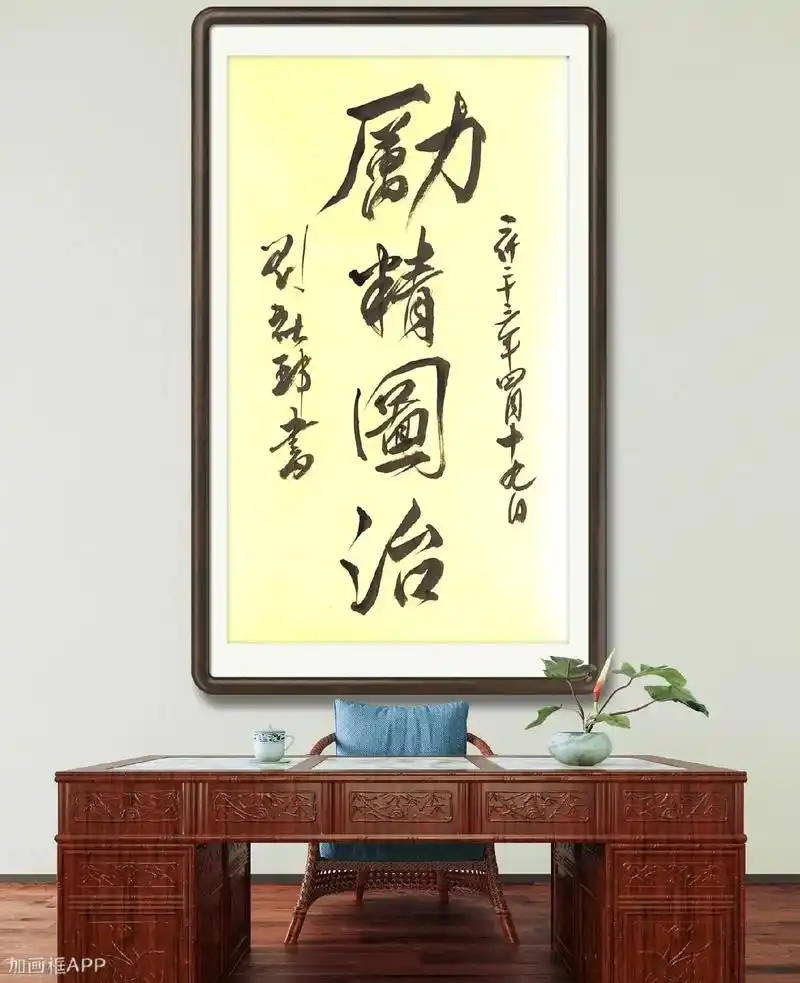 二仟二十三年四月十九日
勵精圖治
劉社書
加画框APP